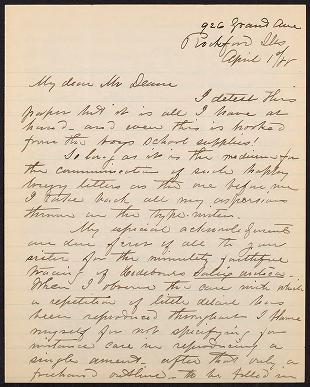 926 Grand Ave
Rockford Ills
April 1st/88
My dear Mr Deane
I detest this
paper but it is all I have at
hand - and even this is hooked
from the boys school supplies!
So long as it is the medium for
the communication of such happy
breezy letters as the one before me
I take back all my aspersions
thrown on the type-writer.
My especial acknowledgments
are due first of all to your
sister for the minutely faithful
tracing of Salix arctica.
When I observe the care with which
a repetition of little details has
been reproduced throughout I blame
myself for not specifying, for
instance care in reproducing a
single ament - after that only a
freehand outline - to be filled in